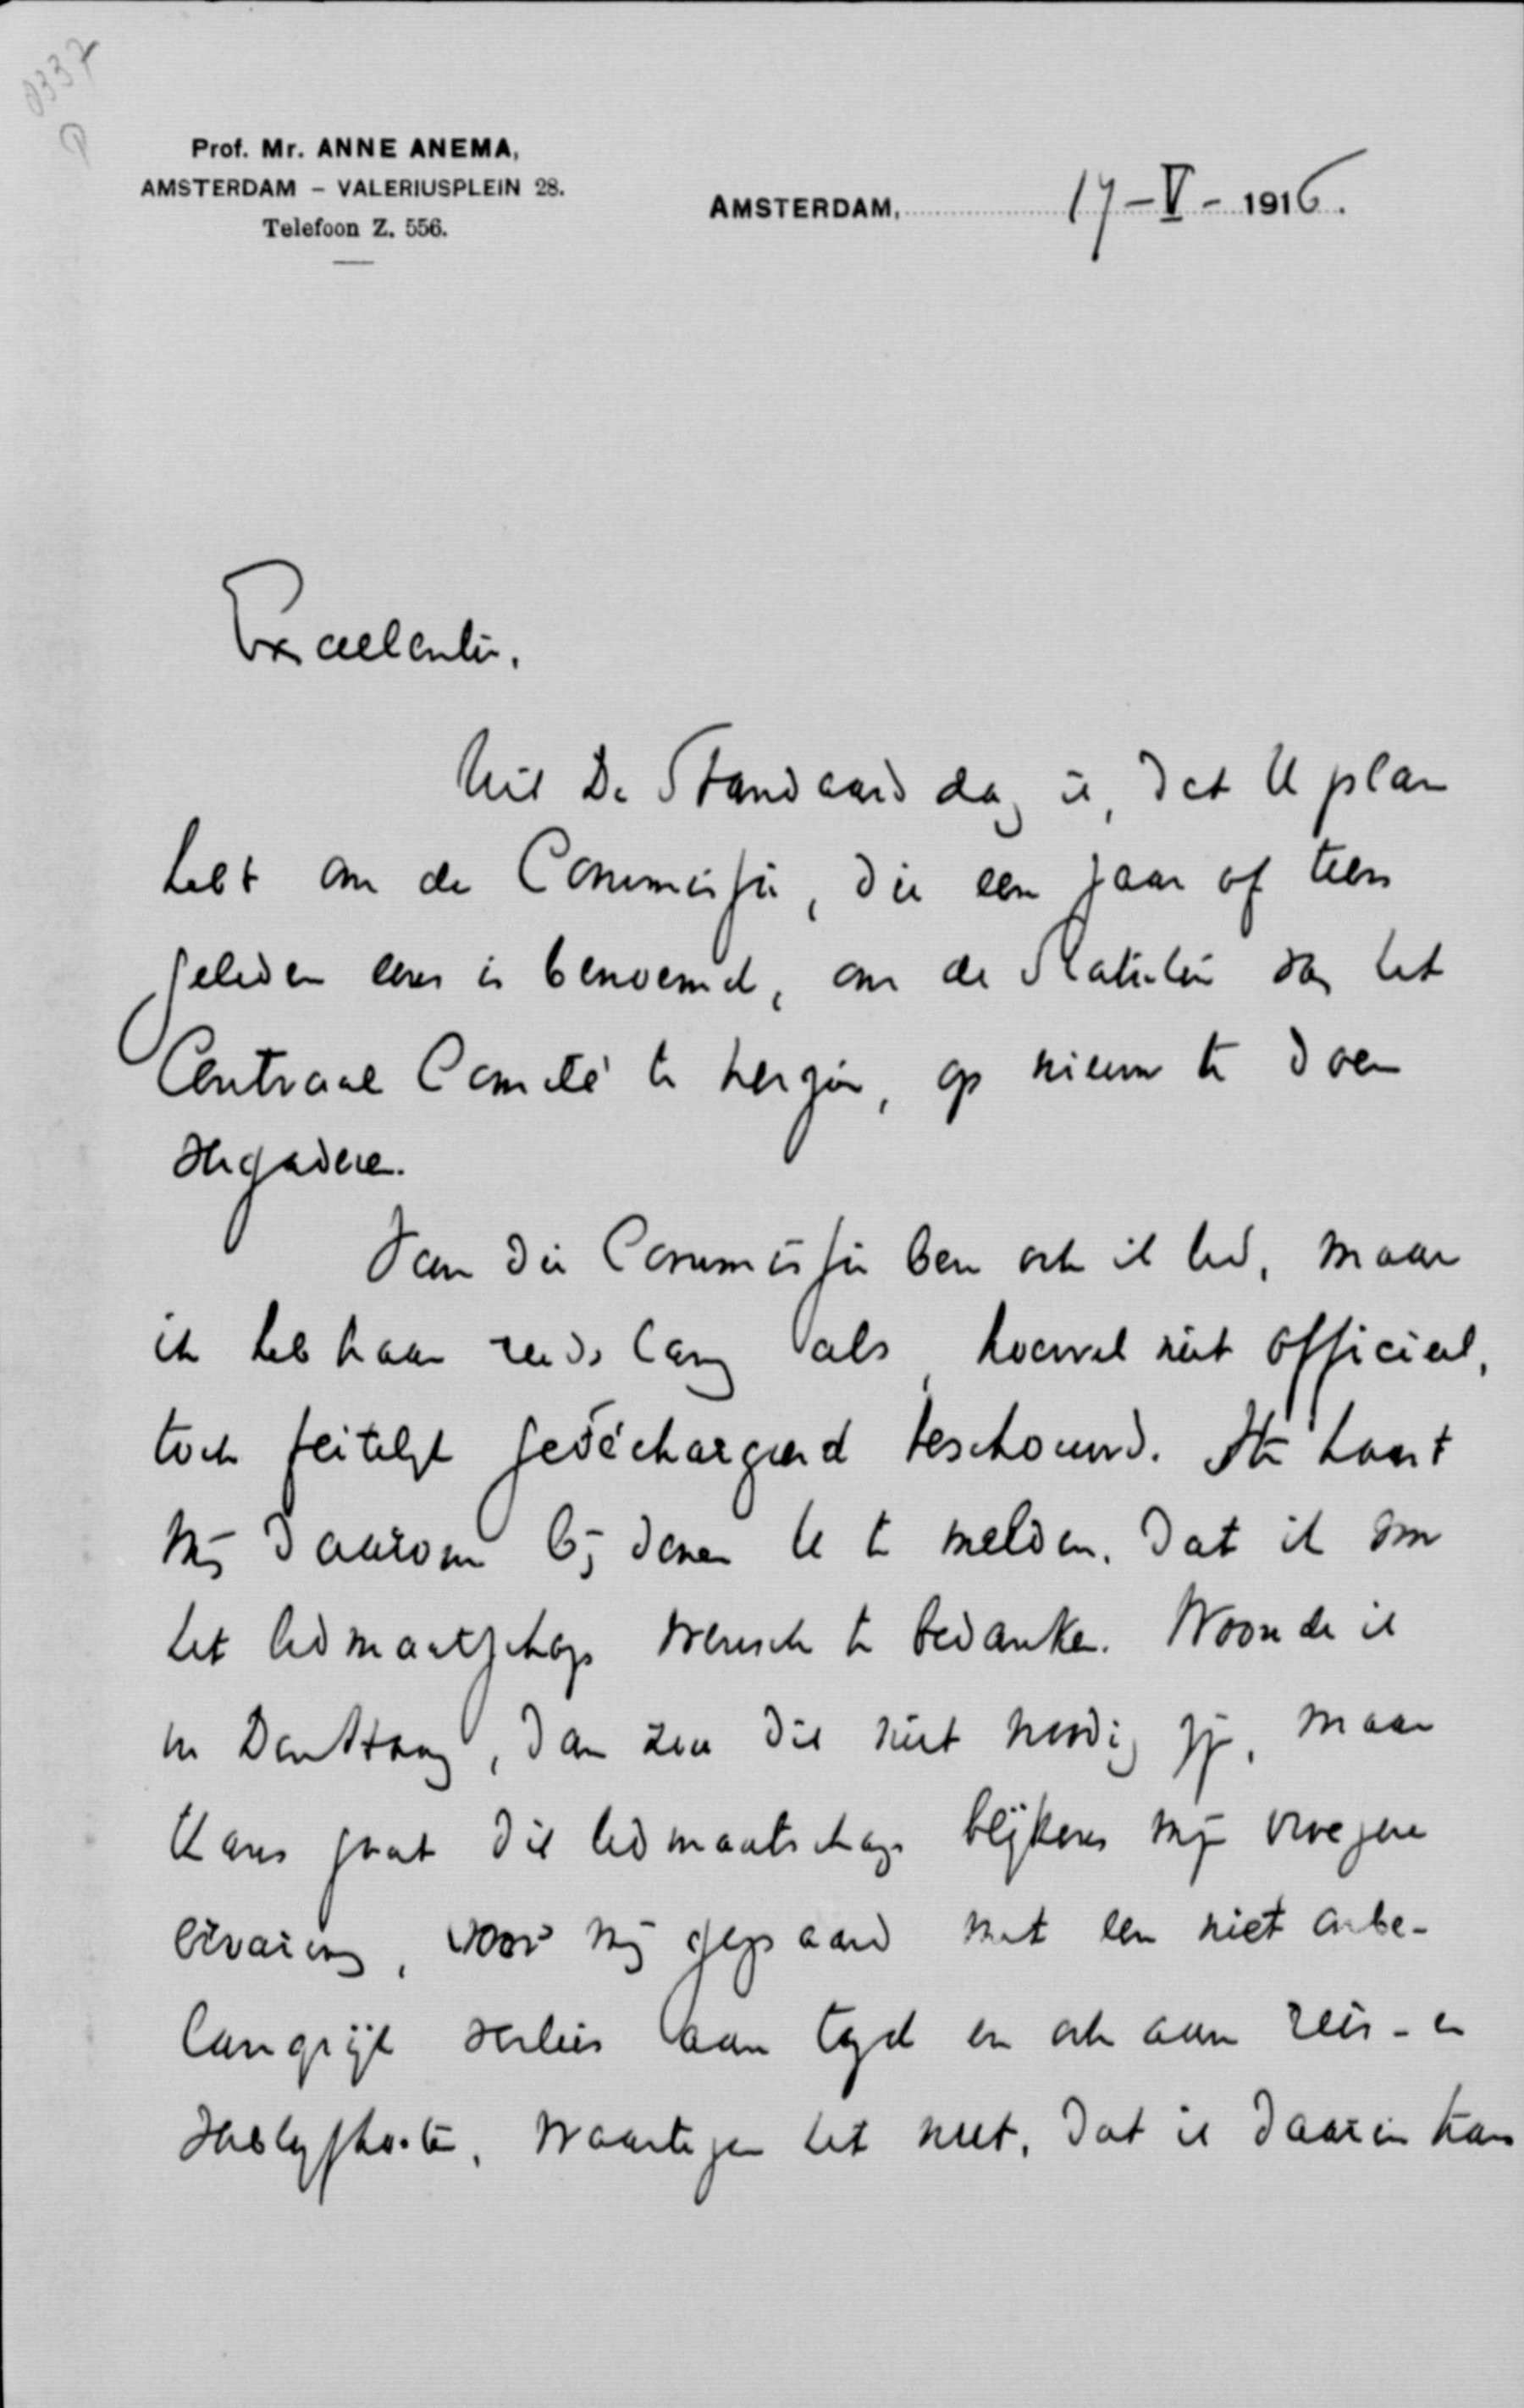 0337
P
Prof. Mr. ANNE ANEMA,
AMSTERDAM – VALERIUSPLEIN 28.
Telefoon Z. 556.
AMSTERDAM, 17-V-1916.
Excellentie,
Uit De Standaard zag ik, dat U plan
hebt om de Commissie, die een jaar of tien
geleden eens is benoemd, om de Statuten van het
Centraal Comité te herzien, op nieuw te doen
vergaderen.
Van die Commissie ben ook ik lid, maar
ik heb haar reeds lang als, hoewel niet officieel,
toch feitelijk gedéchargeerd beschouwd. Ik haast
mij daarom bij dezen U te melden, dat ik voor
het lidmaatschap wensch te bedanken. Woonde ik
in Den Haag, dan zou dit niet noodig zijn, maar
thans gaat dit lidmaatschap blijkens mijn vroegere
ervaring, voor mij gepaard met een niet onbe-
langrijk verlies aan tijd en ook aan reis- en
verblijfkosten, waartegen het nut, dat ik daarin kan